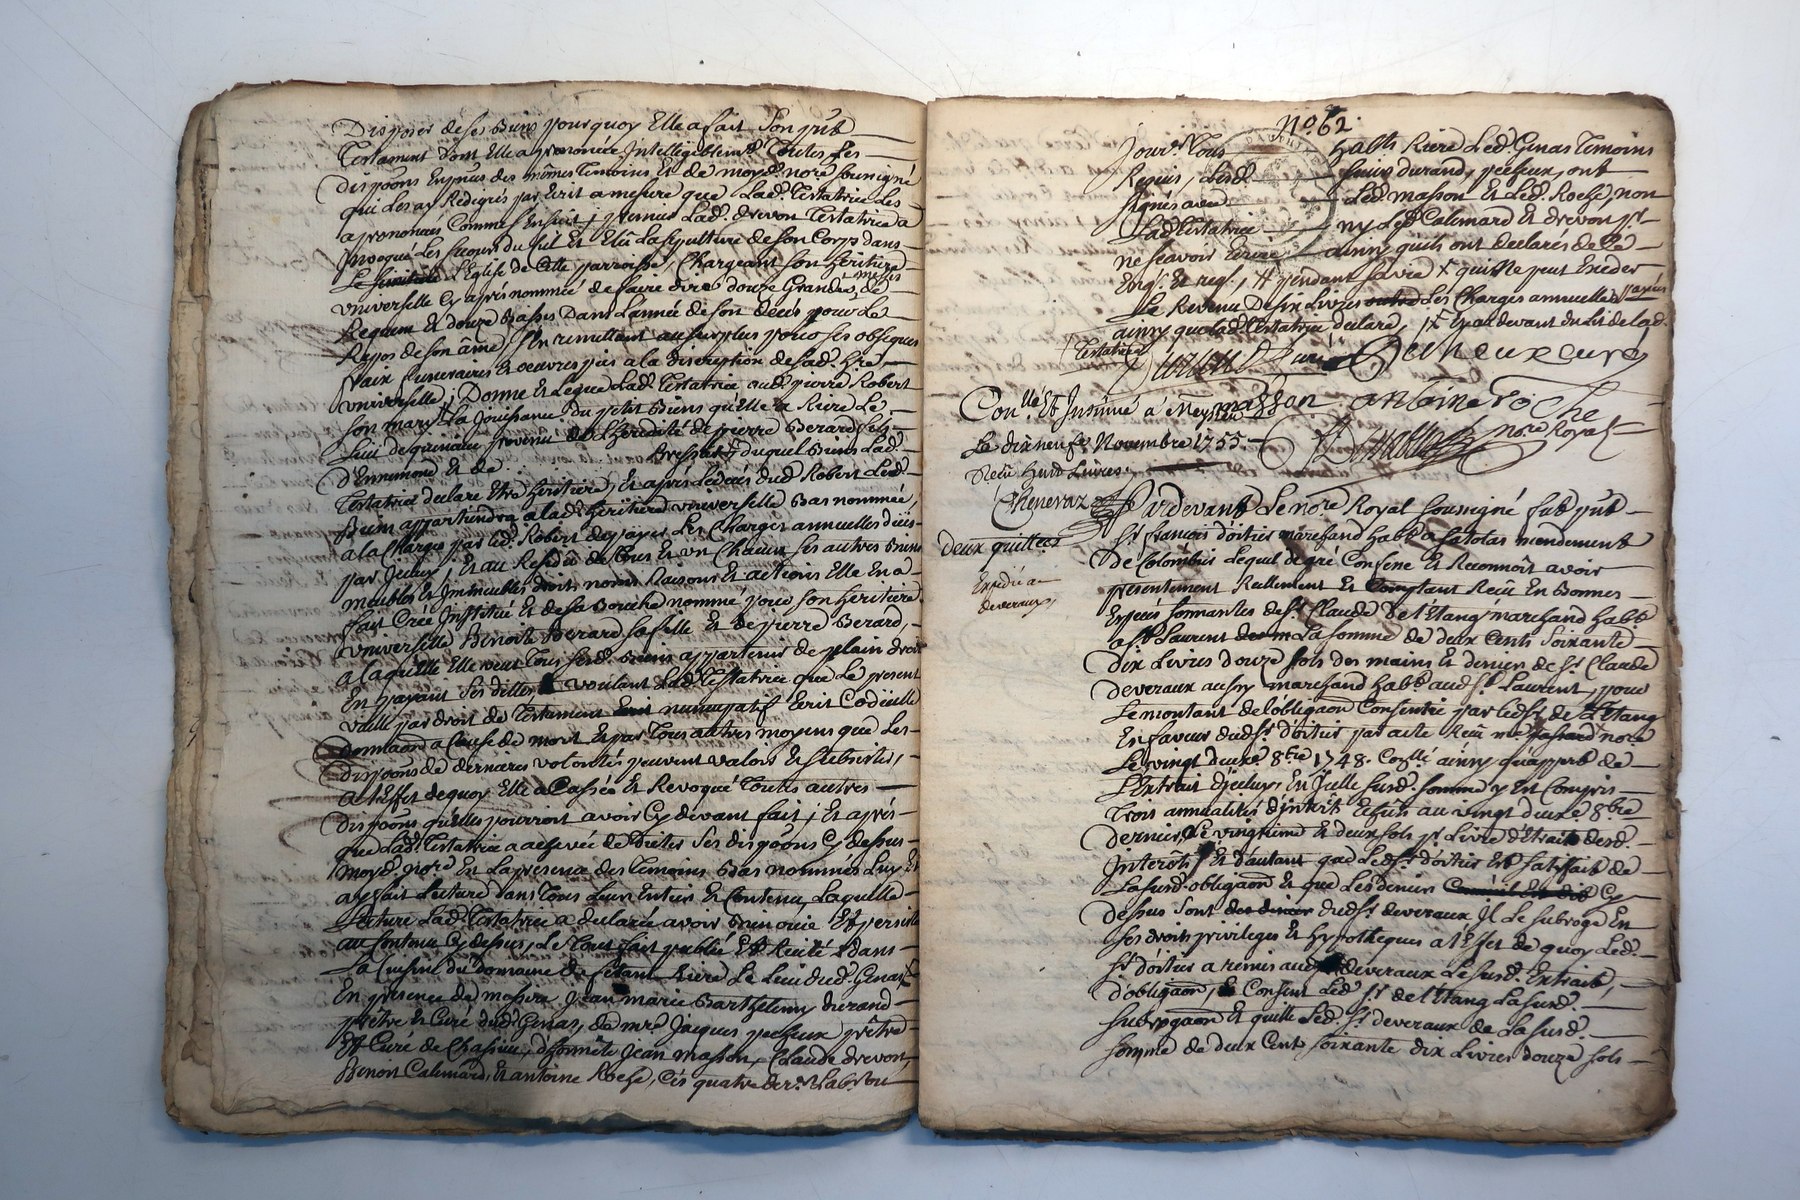 Disposer de ses Biens pourquoy Elle a fait Son pnt
Testament dont Elle a prononcée Intelligiblemt Toutes Les
dispoons En pnce des mêmes Temoins Et de moyd. nore sousigné
qui Les ay Redigées par Ecrit a mesure que Lad. Testatrice Les
a prononcées Comme s'Ensuit; premier Lad. drevon Testatrice a
Invoqué Les secours du Ciel Et Elû La sepulture de son Corps dans
L'Eglise de Cette parroisse, Chargeant son heritiere
universelle Cy après nommée de faire dire douze Grandes messes de
Requiem Et douze Basses Dans L'année de son décès pour Le
Repos de son âme, s'En remettant au surplus pour ses obseques
fraix funeraires Et oeuvres pies a la discretion de sad. hre
universelle; Donne Et Legue Lad. Testatrice aud. pierre Robert
son mary La Jouissance du petit Biens qu'Elle a Riere Le
Lieu de provenu de L'heredité de pierre Berard
d'Ennimond Et de Bressat duquel Biens Lad.
Testatrice declare Etre heritiere, Et après Le décès dud. Robert Led.
Biens appartiendra a lad. heritiere universelle Bas nommée,
à la Charge par led. Robert de payer Les Charges annuelles dües
par Iceux; Et au Residu de Tous Et un Chacun ses autres Biens
meubles Et Immeubles droits noms Raisons Et actions Elle En a
fait Créé Institué Et de sa Bouche nommé pour son heritiere
universelle Benoite Berard sa fille Et de pierre Berard,
a laquelle Elle veut Tous sesd. Biens appartenir de plain droit
En payant ses dittes voulant Lad. Testatrice que Le present
vaille par droit de Testament nuncupatif Ecrit Codicille
donnaon a Cause de mort Et par Tous autres moyens que Les
dispoons de dernieres volontés peuvent valoir Et subsister,
a l'Effet de quoy Elle a Cassées Et Revoqué Toutes autres
dispoons qu'elles pourroit avoir Cy devant fait; Et après
que Lad. Testatrice a achevée de Dicter Ses dispoons Cy dessus
moyd. nore En La presence des Temoins Bas nommés Luy Et
ay fait Lecture dans Tous Leur Entier Et Contenu, Laquelle
Lecture Lad. Testatrice a declarée avoir Bien ouïe Et persiste
au Contenu Cy dessus, Le Tout fait publié Et Recité dans
La Cuisine du Domaine de Riere Le Lieu dud. Genas
En presence de messire Jean marie Barthelemy durand
prêtre Et Curé dud. Genas, de mre Jacques pecheux prêtre
Et Curé de Chassieu, d'honnête Jean masson, Claude drevon,
Benoit Calemard, Et antoine Roche, Ces quatre derrs Labrs
no 62.
Jourrs Tous habts Riere Led. Genas Temoins
Requis, Lesd. sieurs durand, pecheux, ont
signés avec Led. masson Et Led. Roche, non
Lad. Testatrice ny Lesd. Calemard Et drevon pr
ne sçavoir Ecrire ainsy qu'ils ont declarés de Ce
Enqs. Et reqs., # pendant sa vie + qui Ne peut Exceder
Le Revenu De six Livres outre Les Charges annuelles payées
ainsy que Lad. Testatrice declare, Et au devant du Lit de Lad.
Testatrice
Durand Curé Pecheux curé
masson antoine roche
nore Royal
Conllé Et Insinué a Meyzieu
Le dix neuf Novembre 1755.
Reçu huit Livres.
Chenevaz
deux quittces
Expedié a
deveraux,
Pardevant Le nore Royal sousigné fut pnt
Sr françois d'oitier marchand habt a Satolas mendement
de Colombier Lequel de gré Confesse Et Reconnoit avoir
presentement Reellement Et Comptant Reçu En Bonnes
Especes sonnantes de Sr Claude De l'Etang marchand habt
a St Laurent La somme de deux Cents Soixante
Dix Livres douze sols des mains Et deniers de Sr Claude
deveraux aussy marchand habt aud. St Laurent, pour
Le montant de l'obligaon Consentie par led. Sr de L'Etang
En faveur dud. Sr. d'oitier par acte Reçu me nore
Le vingt deuxe 8bre 1748. Conllé ainsy qu'appert de
L'Extrait d'Icelluy, En Icelle susd. somme y Est Compris
Trois annualités d'Interêt Echües au vingt deuxe 8bre
dernier, Le vingtieme Et deux sols pr Livre d'Etrait desd.
Interets, Et d'autant que Led. Sr. d'oitier Est satisfait de
La susd. obligaon Et que Les deniers Cy
dessus sont dud. Sr. deveraux Il Le subroge En
ses droits privileges Et hypotheques a l'Effet de quoy Led.
Sr. d'oitier a remis aud. deveraux Le susd. Extrait
d'obligaon, Consent Led. Sr de l'Etang La susd.
subrogaon Et quitte Led. Sr. deveraux de La susd.
somme de deux Cent soixante dix Livres douze sols